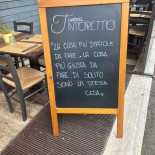 Taverna
TINTORETTO
"LA COSA PIÙ DIFFICILE
DA FARE, LA COSA
PIÙ GIUSTA DA
FARE. DI SOLITO
SONO LA STESSA
COSA"